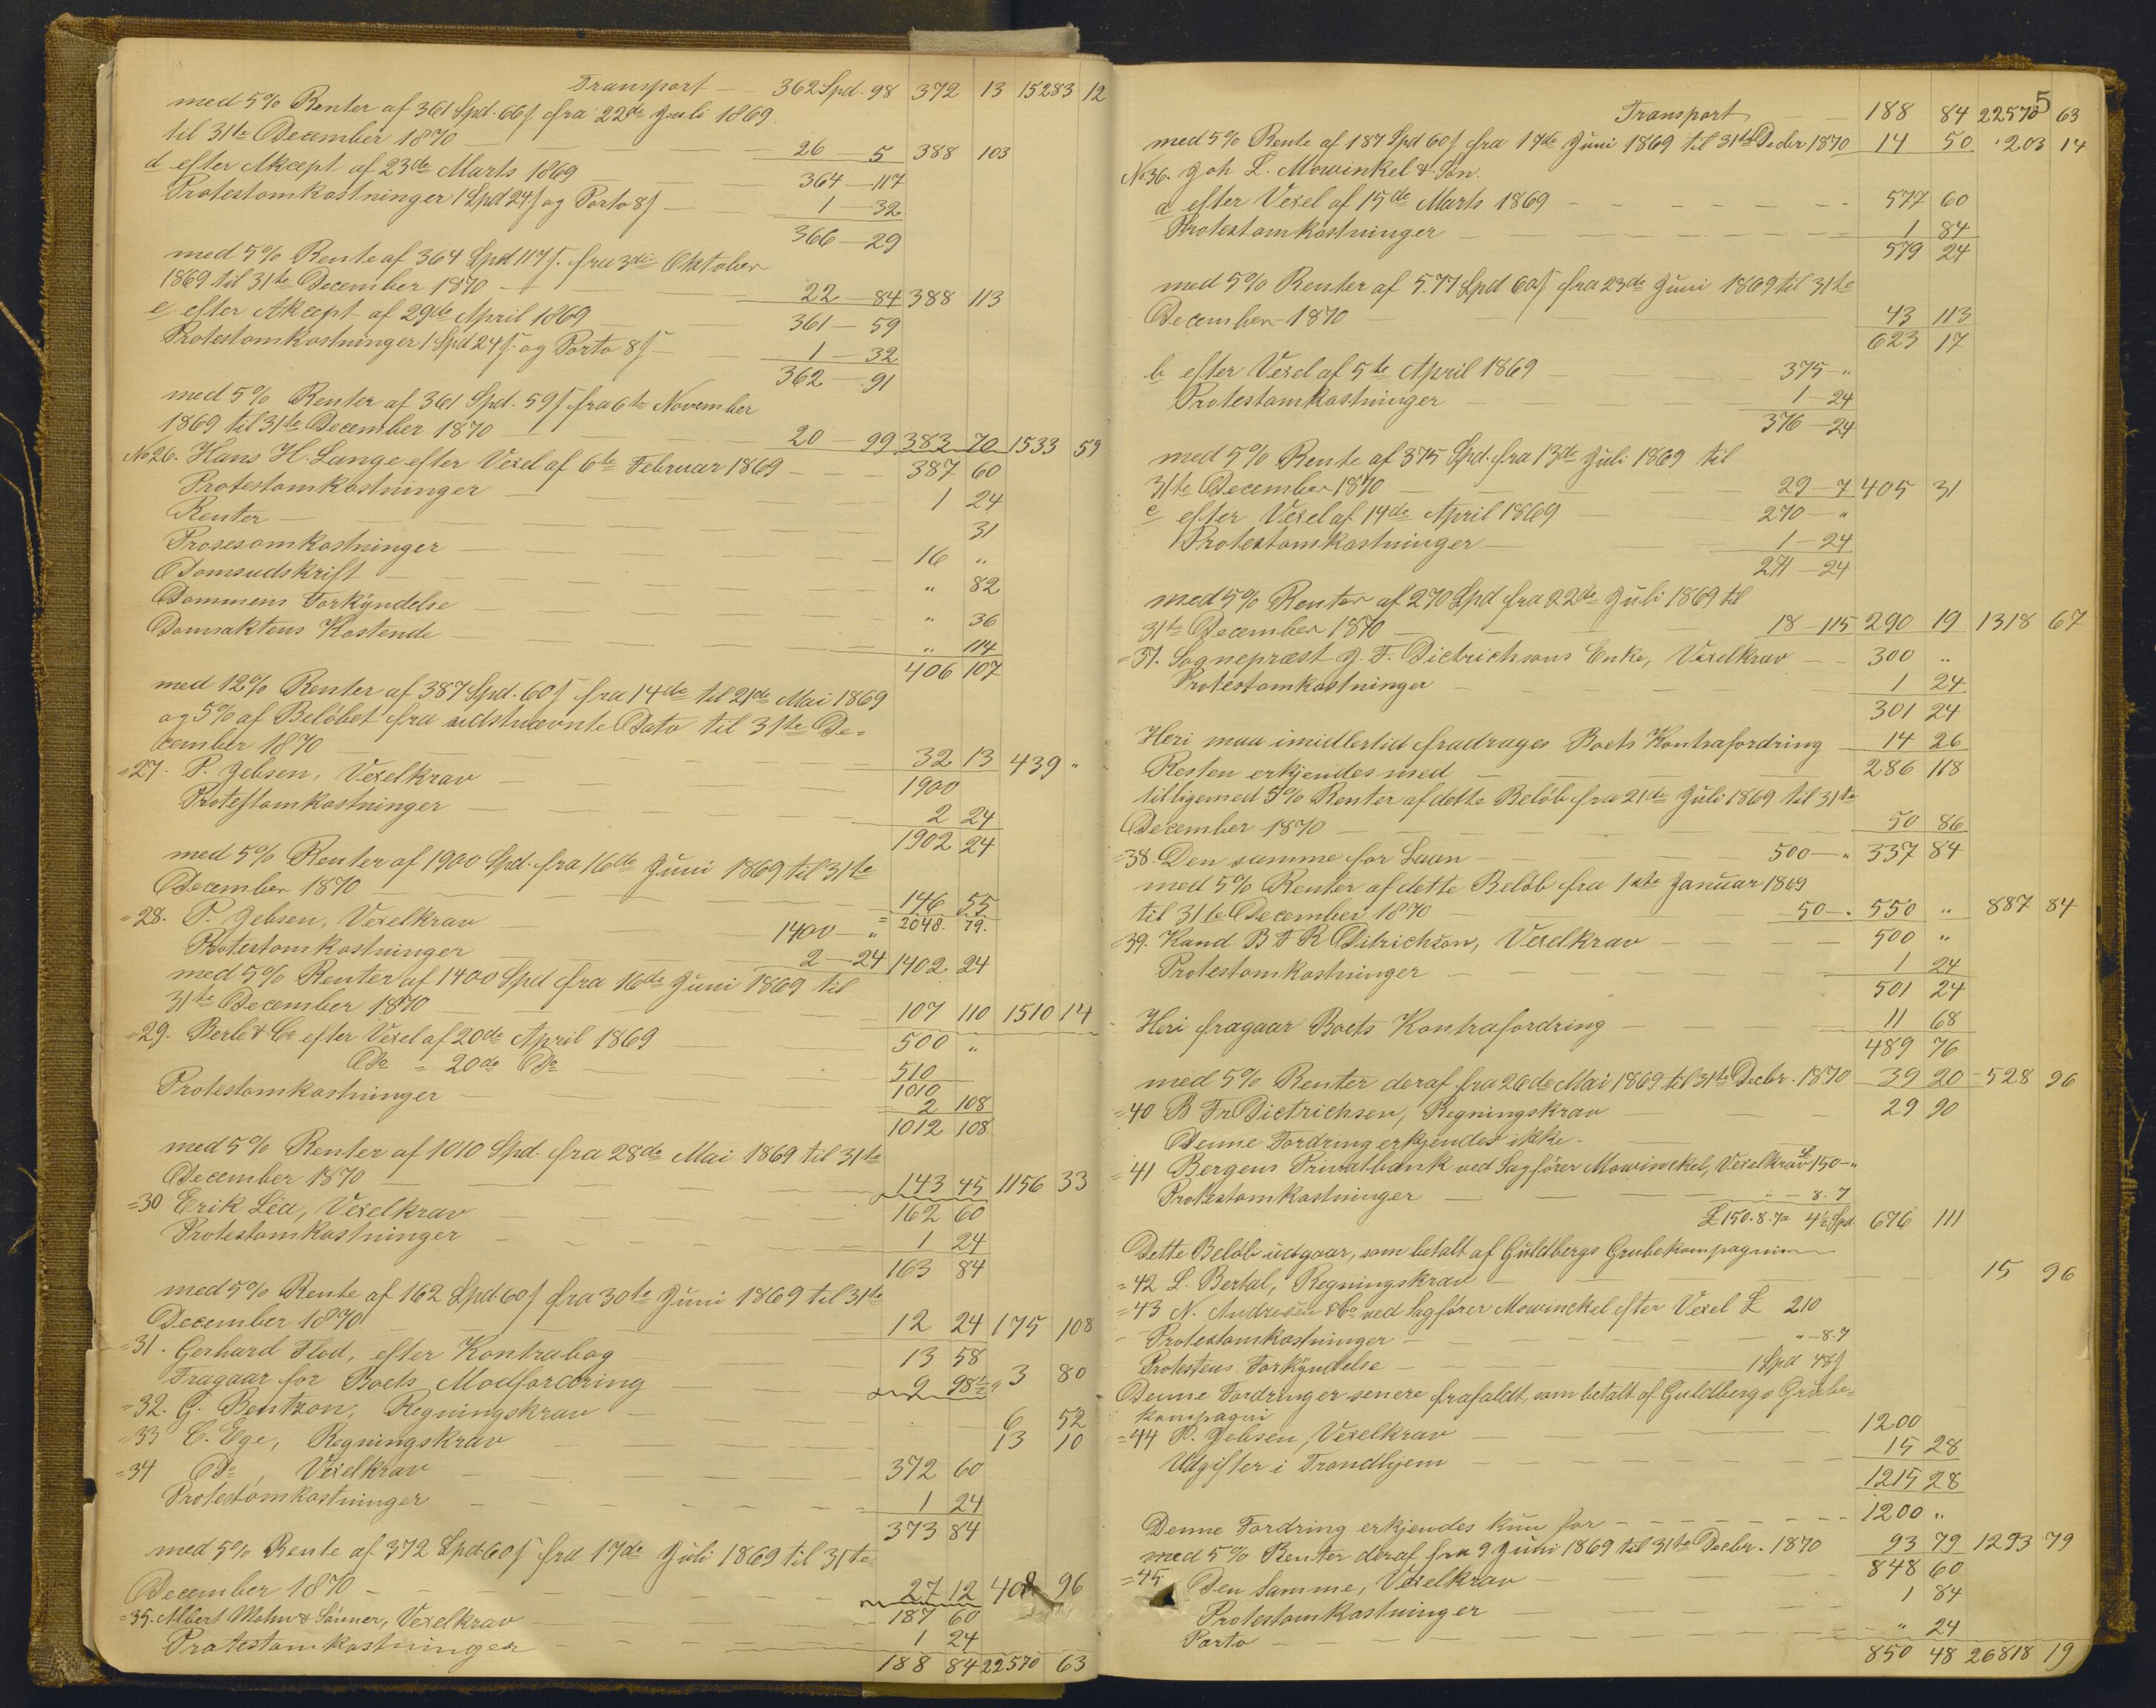 Transport — 362 Spd. 98 372 13 15283 12
med 5% Renter af 361 Spd. 66ʃ fra 22de Juli 1869
til 31te December 1870 — 26 — 5 388 103
d efter Akcept af 23de Marts 1869 — 364 — 117
Protestomkostninger 1 Spd 24ʃ og Porto 8ʃ — 1 — 32
366 — 29
med 5% Rente af 364 Spd 117ʃ. fra 3die Oktober
1869 til 31te December 1870 — 22 — 84 388 113
e efter Akcept af 29de April 1869 — 361 — 59
Protestomkostninger 1 Spd 24ʃ. og Porto 8ʃ — 1 — 32
362 — 91
med 5% Renter af 361 Spd. 59ʃ fra 6te November
1869 til 31te December 1870 — 20 — 99 383 70 1533 59
No 26. Hans H. Lange efter Vexel af 6te Februar 1869 — 387 60
Protestomkostninger 1 24
Renter — 31
Prosesomkostninger — 16 "
Domsudskrift — " 82
Dommens Forkyndelse — " 36
Domsaktens Kostende — " 114
406 107
med 12% Renter af 387 Spd. 60ʃ fra 14de til 21de Mai 1869
og 5% af Beløbet fra sidstnævnte Dato til 31te De=
cember 1870 — 32 13 439 "
=27. P. Jebsen, Vexelkrav — 1900
Protestomkostninger — 2 24
1902 24
med 5% Renter af 1900 Spd. fra 16de Juni 1869 til 31te
December 1870 — 146 55
=28. P. Jebsen, Vexelkrav — 1400 — " = 2048. 79.
Protestomkostninger 2 — 24 1402 24
med 5% Renter af 1400 Spd fra 16de Juni 1869 til
31te December 1870 — 107 110 1510 14
=29. Berle & Co efter Vexel af 20de April 1869 — 500 "
Do = 20de Do — 510
1010
Protestomkostninger — 2 108
1012 108
med 5% Renter af 1010 Spd. fra 28de Mai 1869 til 31te
December 1870 — 143 45 1156 33
=30 Erik Lea, Vexelkrav — 162 60
Protestomkostninger — 1 24
163 84
med 5% Rente af 162 Spd. 60ʃ fra 30te Juni 1869 til 31te
December 1870 — 12 24 175 108
=31. Gerhard Flod, efter Kontrabog — 13 58
Fragaar for Boets Modfordring — 2 98½ " 3 80
=32. G. Bentzon, Regningskrav — 6 52
=33 C. Ege, Regningskrav 13 10
=34 Do, Vexelkrav — 372 60
Protestomkostninger — 1 24
373 84
med 5% Rente af 372 Spd. 60ʃ fra 17de Juli 1869 til 31te
December 1870 — 27 12 96
=35. Albert Mohn & Sønner, Vexelkrav — 187 60
Protestomkostninger — 1 24
188 84 22570 63
5
Transport — 188 84 22570 63
med 5% Rente af 187 Spd 60ʃ fra 17de Juni 1869 til 31te Decbr 1870 14 50 203 14
No 36. Joh L. Mowinkel & Søn.
a efter Vexel af 15de Marts 1869 — 577 60
Protestomkostninger — 1 84
579 24
med 5% Renter af 577 Spd 60ʃ fra 23de Juni 1869 til 31te
December 1870 — 43 113
623 17
b efter Vexel af 5te April 1869 — 375 — "
Protestomkostninger — 1 — 24
376 — 24
med 5% Rente af 375 Spd. fra 13de Juli 1869 til
31te December 1870 — 29 — 7 405 31
c efter Vexel af 14de April 1869 — 270 — "
Protestomkostninger — 1 — 24
271 — 24
med 5% Renter af 270 Spd fra 22de Juli 1869 til
31te December 1870 — 18 — 115 290 19 1318 67
=37. Sogneprest J. F. Dietrichsons Enke, Vexelkrav — 300 "
Protestomkostninger — 1 24
301 24
Heri maa imidlertid fradrages Boets Kontrafordring — 14 26
Resten erkjendes med — 286 118
tilligemed 5% Renter af dette Beløb fra 21de Juli 1869 til 31te
December 1870 — 50 86
=38. Den samme for Laan — 500 — " 337 84
med 5% Renter af dette Beløb fra 1ste Januar 1869
til 31te December 1870 — 50 — " 550 " 887 84
=39. Kand. B F R Ditrichson, Vexelkrav — 500 "
Protestomkostninger — 1 24
501 24
Heri fragaar Boets Kontrafordring — 11 68
489 76
med 5% Renter deraf fra 26de Mai 1869 til 31te Decbr. 1870 — 39 20 528 96
=40 B Fr Dietrichsen, Regningskrav — 29 90
Denne Fordring erkjendes ikke.
=41 Bergens Privatbank ved Sagfører Mowinckel, Vexelkrav £ 150 — "
Protestomkostninger — " — 8. 7
£ 150. 8. 7 a 4½ Spd. 676 111
Dette Beløb udgaar, som betalt af Guldbergs Grubekompagni
=42 L. Bertal, Regningskrav — 15 96
=43 N. Andresen & Co ved Sagfører Mowinckel efter Vexel £ 210
Protestomkostninger — " — 8. 7
Protestens Forkyndelse — 1 Spd 48ʃ
Denne Fordringer senere frafaldt, som betalt af Guldbergs Grube=
kompagni
=44 P. Jebsen, Vexelkrav — 1200
Udgifter i Trondhjem — 15 28
1215 28
Denne Fordring erkjendes kun for — 1200 "
med 5% Renter deraf fra 9 Juni 1869 til 31te Decbr. 1870 93 79 1293 79
=45. Den Samme, Vexelkrav — 848 60
Protestomkostninger — 1 84
Porto — " 24
850 48 26818 19